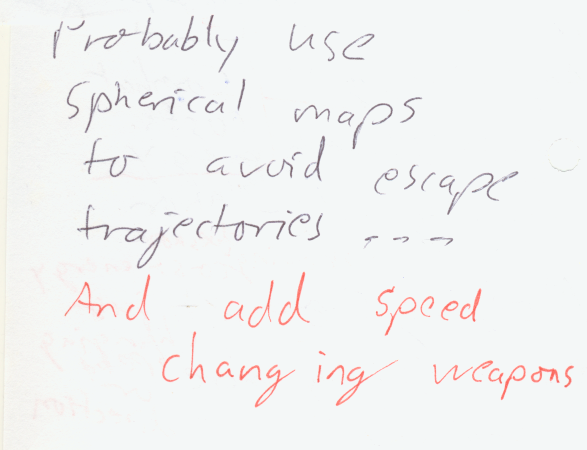 Probably use
spherical maps
to avoid escape
trajectories ---
And add speed
changing weapons